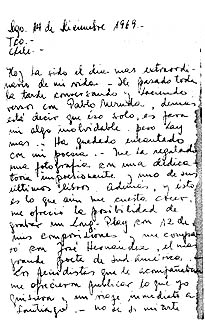 Sgo. 14 de diciembre 1969.-
Teo.-
Chile.-
Hoy ha sido el día más extraordi-
nario de mi vida.- He pasado toda
la tarde conversando y haciendo
versos con Pablo Neruda, demás
está decir que eso solo, es para
mí algo inolvidable. pero hay
más.- Ha quedado encantado
con mi poesía.- Me ha regalado
una fotografía con una dedica
toria impresionante y uno de sus
últimos libros. Además, y esto
es lo que aún me cuesta creer.
me ofreció la posibilidad de
grabar un Long Play con 12 de
mis composiciones.- me compa
ró con José Hernández, el más
grande poeta de sud américa.
Los periodistas que le acompañaban
me ofrecieron publicar lo que yo
quisiera y un viaje inmediato a
Santiago.- no se si mi arte